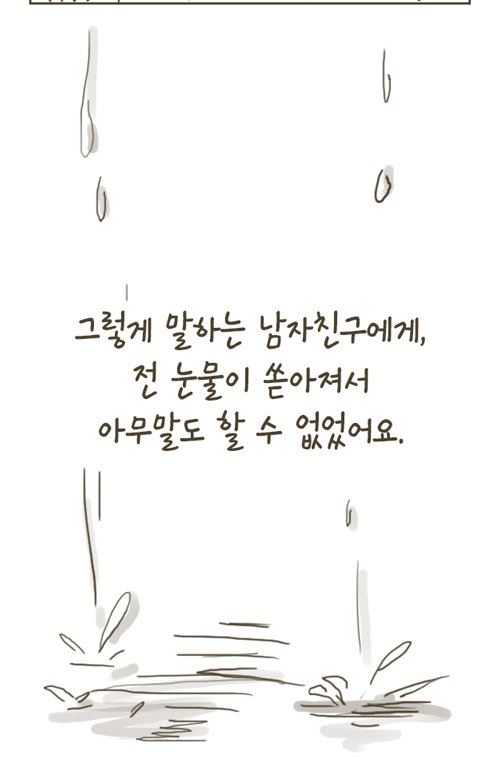 그렇게 말하는 남자친구에게,
전 눈물이 쏟아져서
아무말도 할 수 없었어요.